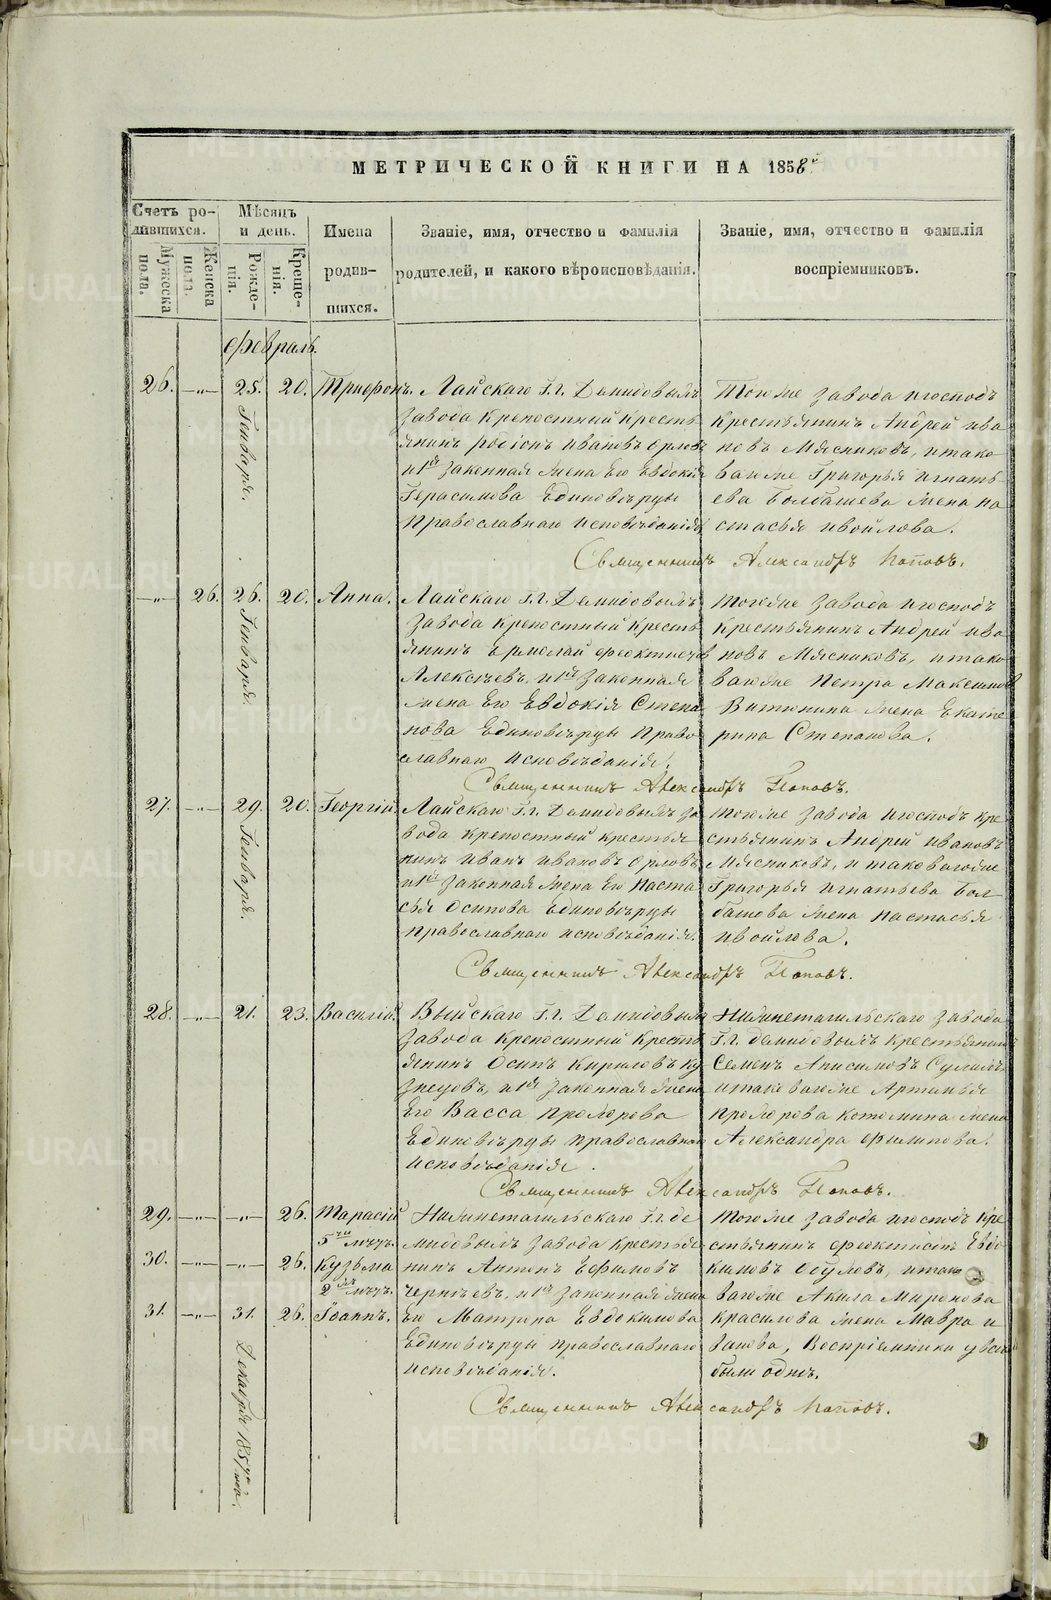 МЕТРИЧЕСКОЙ КНИГИ НА 1858й
Счетъ ро-
дившихся.
Мужеска
пола.
Женска
пола.
Мѣсяцъ
и день.
Рожде-
нія.
Креще-
нія.
Имена
родив-
шихся.
Званіе, имя, отчество и фамилія
родителей, и какого вѣроисповѣданія.
Званіе, имя, отчество и фамилія
воспріемниковъ.
Февраль.
26. —„— 25. Генваря. 20. Трифонъ.
Лайскаго Г.г. Демидовыхъ
завода крепостный кресть
янинъ Ивановъ Орловъ
и его законная жена Его Евдокія
Герасимова Единовѣрцы
православнаго исповѣданія
Тогоже завода и господъ
крестьянинъ Андрей Ива
новъ Мясниковъ, и тако
ваго же Григорья Игнать
ева Болбашева жена На
стасья Ивойлова.
Священникъ Александръ Поповъ.
—„— 26. 26. Генваря. 20. Анна.
Лайскаго Г.г. Демидовыхъ
завода крепостный кресть
янинъ Ермолай Феоктистов
Алексѣевъ, и его законная
жена Его Евдокія Степа
нова Единовѣрцы право
славнаго исповѣданія.
Тогоже завода и господъ
крестьянинъ Андрей Ива
новъ Мясниковъ, и тако
ваго же Петра Максимов
жена Екате
рина Степанова.
Священникъ Александръ Поповъ.
27. —„— 29. Генваря. 20. Георгій.
Лайскаго Г.г. Демидовыхъ за
вода крепостный крестья
нинъ Иванъ Ивановъ Орловъ
и его законная жена Его Наста
сья Осипова Единовѣрцы
православнаго исповѣданія.
Тогоже завода и господъ кре
стьянинъ Андрей Ивановъ
Мясниковъ, и таковагоже
Григорья Игнатьева Бол
башева жена Настасья
Ивойлова.
Священникъ Александръ Поповъ.
28. —„— 21. 23. Василій.
Выйскаго Г.г. Демидовыхъ
завода крепостный кресть
янинъ Осипъ Кириловъ Ку
знецовъ, и его законная жена
Его Васса Прохорова
Единовѣрцы православнаго
исповѣданія.
Нижнетагильскаго завода
Г.г. Демидовыхъ крестьянинъ
Семенъ Анисимовъ
и таковагоже
Прохорова Котомина жена
Александра Филипова.
Священникъ Александръ Поповъ.
29. —„— —„— 26. Тарасій
30. —„— —„— 26. Кузьма
31. —„— 31. Декабря 1857 года. 26. Іоаннъ.
Нижнетагильскаго Г.г. Де
мидовыхъ завода крестья
нинъ Антонъ Ефимовъ
и его законная жена
Его Матрена Евдокимова
Единовѣрцы православнаго
исповѣданія.
Тогоже завода и господъ кре
стьянинъ Феоктистъ Евдо
кимовъ и тако
вагоже Акила Миронова
Красилова жена Мавра И
ванова, Воспріемники у всѣхъ
были однѣ.
Священникъ Александръ Поповъ.
METRIKI.GASO-URAL.RU